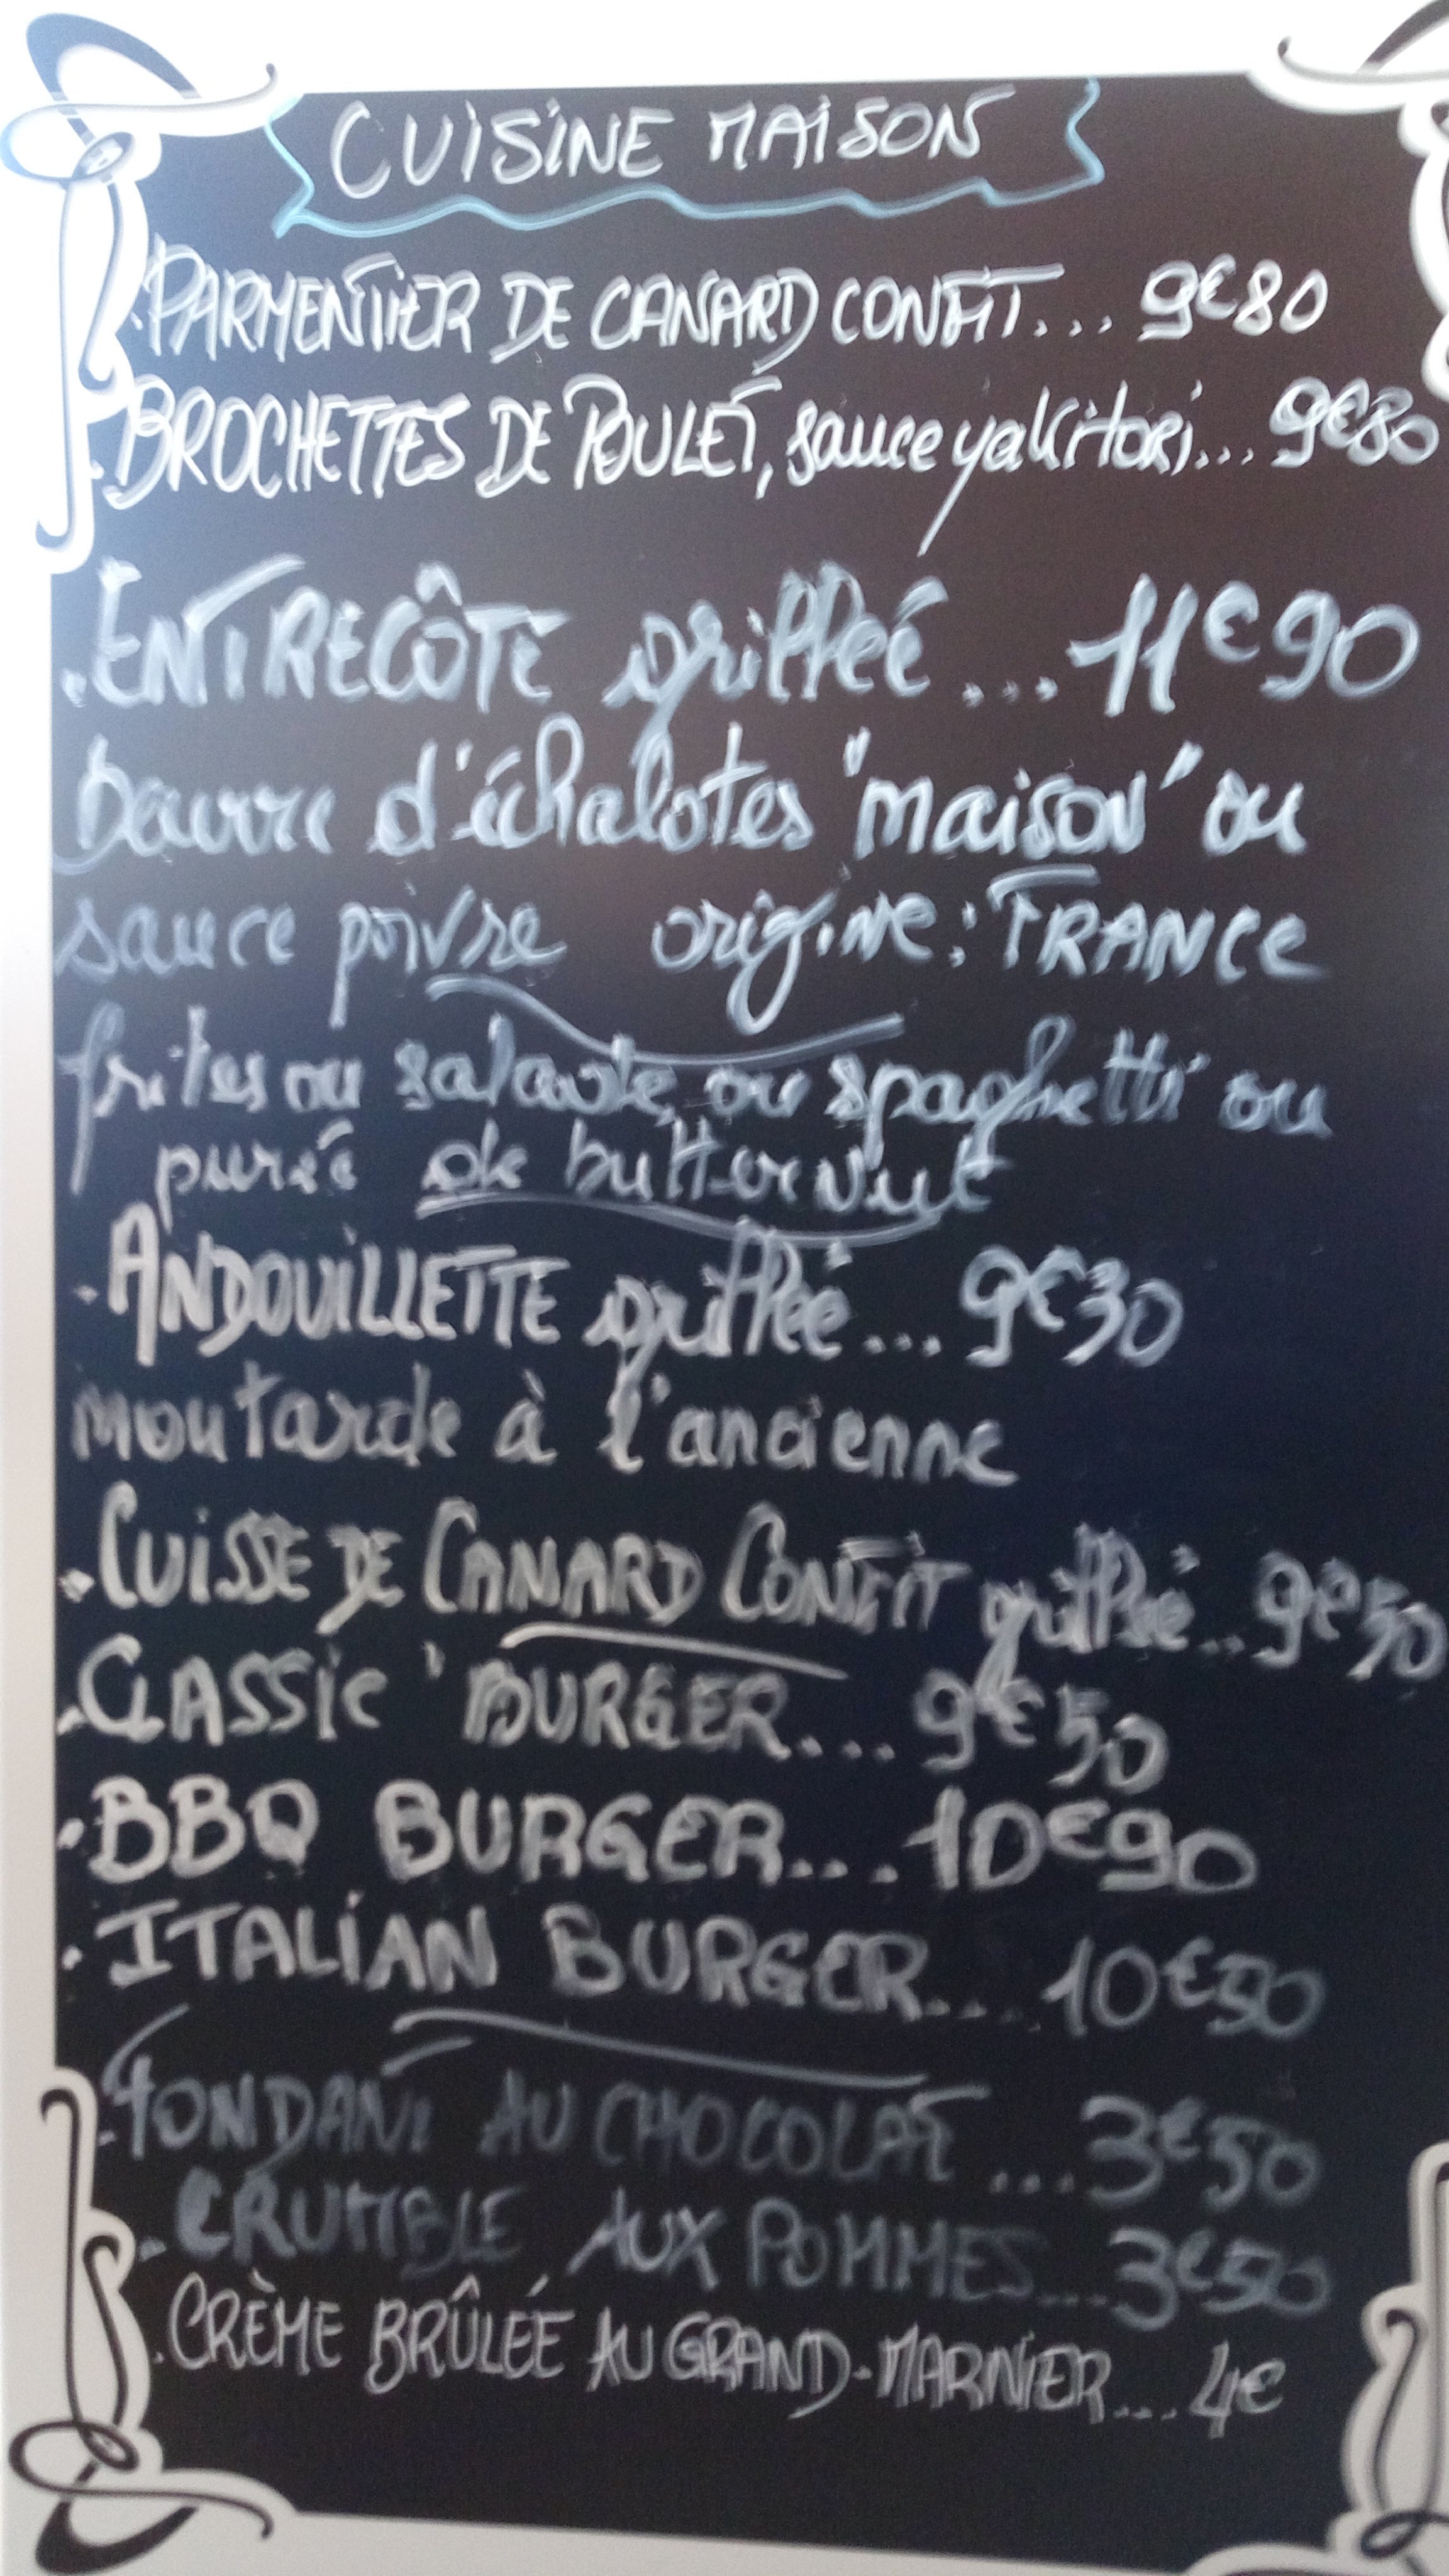 CUISINE MAISON
. PARMENTIER DE CANARD CONFIT... 9€80
. BROCHETTES DE POULET, sauce yakitori... 9€80
. ENTRECÔTE grillée ... 11€90
beurre d'échalotes "maison" ou
sauce poivre origine: FRANCE
frites ou salade, ou spaghetti ou
purée de butternut
. ANDOUILLETTE grillée... 9€30
moutarde à l'ancienne
. CUISSE DE CANARD CONFIT grillée... 9€50
. CLASSIC' BURGER... 9€50
. BBQ BURGER... 10€90
. ITALIAN BURGER... 10€50
. FONDANT AU CHOCOLAT ... 3€50
. CRUMBLE AUX POMMES... 3€50
. CRÈME BRÛLÉE AU GRAND-MARNIER... 4€